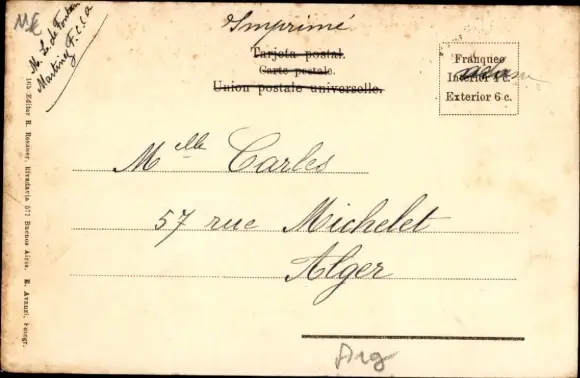 M. L. de
Martinez F.C.C.A
Imprimé
Tarjeta postal.
Carte postale.
Union postale universelle.
Franqueo
Interior 4 c.
Exterior 6 c.
Melle Carles
57 rue Michelet
Alger
Arg
165 Editor R. Rosauer, Rivadavia 571 Buenos Aires. E. Avanzi, Fotogr.